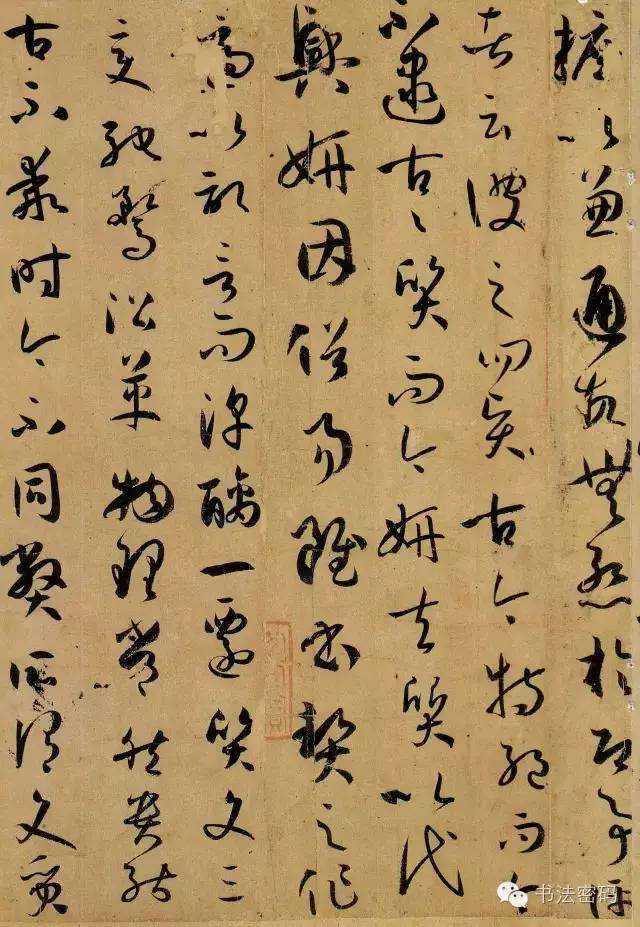 摭以兼通故無慚於即事評
者云彼之四賢古今特絕而今
不逮古〻質而今妍夫質以代
興妍因俗易雖書契之作
適以記言而淳醨一遷質文三
變馳騖沿革物理常然貴能
古不乖時今不同弊所謂文質
书法密码